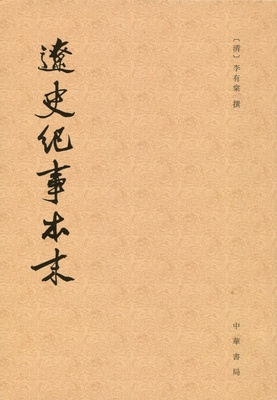 遼史紀事本末
〔清〕李有棠 撰
中華書局